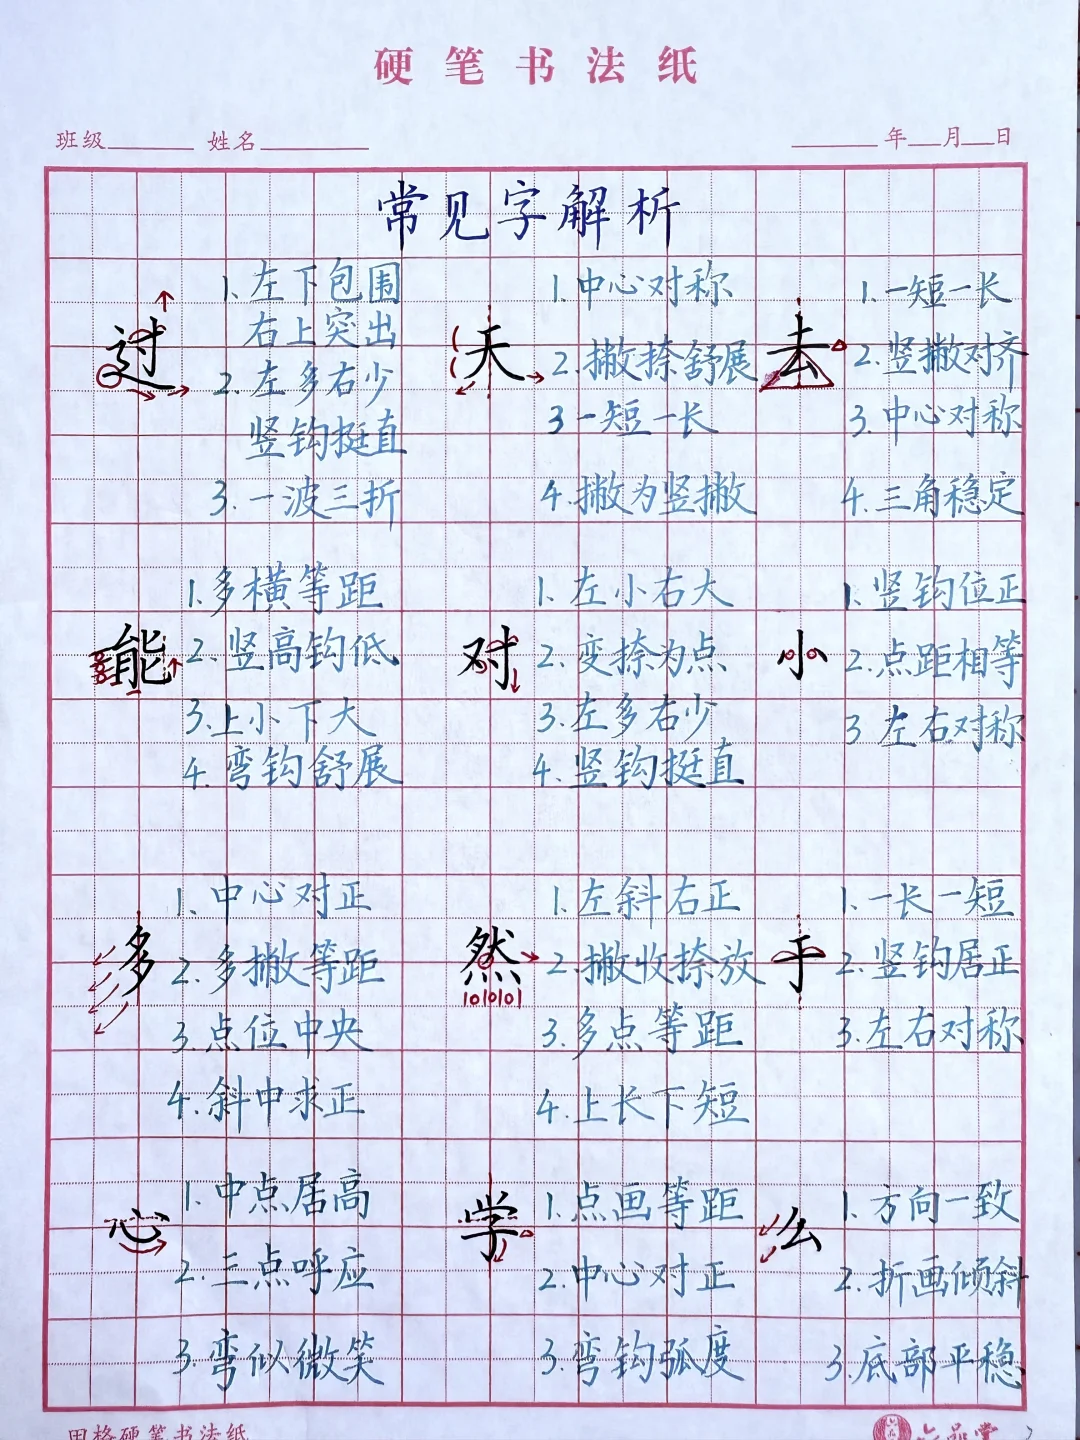 硬笔书法纸
班级 姓名 年 月 日
常见字解析
过
1.左下包围
右上突出
2.左多右少
竖钩挺直
3.一波三折
天
1.中心对称
2.撇捺舒展
3一短一长
4.撇为竖撇
去
1.一短一长
2.竖撇对齐
3.中心对称
4.三角稳定
能
1.多横等距
2.竖高钩低
3.上小下大
4.弯钩舒展
对
1.左小右大
2.变捺为点
3.左多右少
4.竖钩挺直
小
1.竖钩位正
2.点距相等
3左右对称
多
1.中心对正
2.多撇等距
3.点位中央
4.斜中求正
然
1.左斜右正
2.撇收捺放
3.多点等距
4.上长下短
于
1.一长一短
2.竖钩居正
3.左右对称
心
1.中点居高
2.三点呼应
3.弯似微笑
学
1.点画等距
2.中心对正
3.弯钩弧度
么
1.方向一致
2.折画倾斜
3.底部平稳
田格硬笔书法纸
六品堂